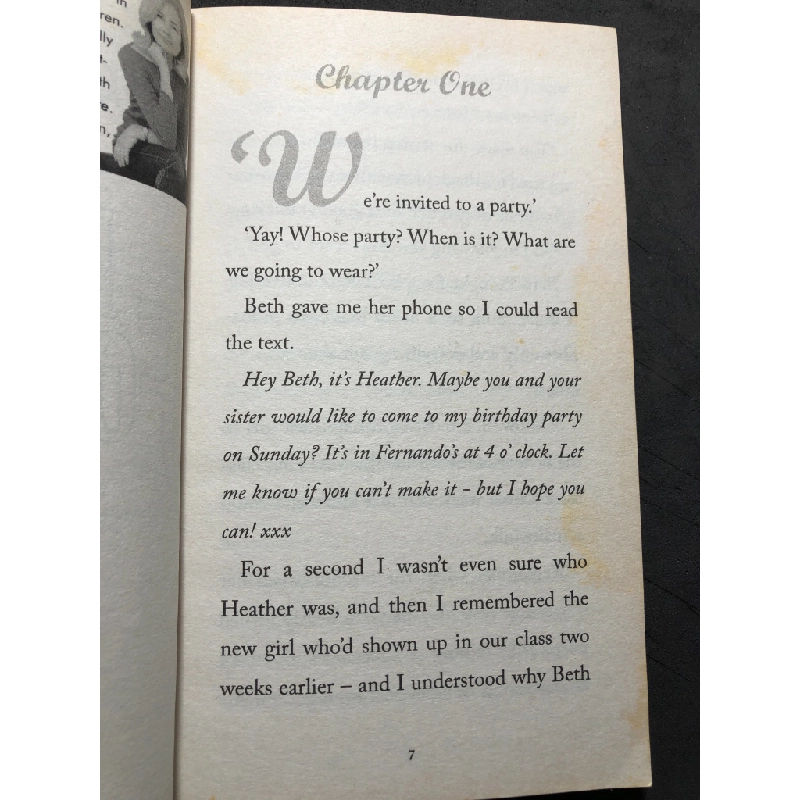 in
ren.
lly
t-
th
e.
n,
Chapter One
‘We’re invited to a party.’
‘Yay! Whose party? When is it? What are
we going to wear?’
Beth gave me her phone so I could read
the text.
Hey Beth, it’s Heather. Maybe you and your
sister would like to come to my birthday party
on Sunday? It’s in Fernando’s at 4 o’ clock. Let
me know if you can’t make it – but I hope you
can! xxx
For a second I wasn’t even sure who
Heather was, and then I remembered the
new girl who’d shown up in our class two
weeks earlier – and I understood why Beth
7